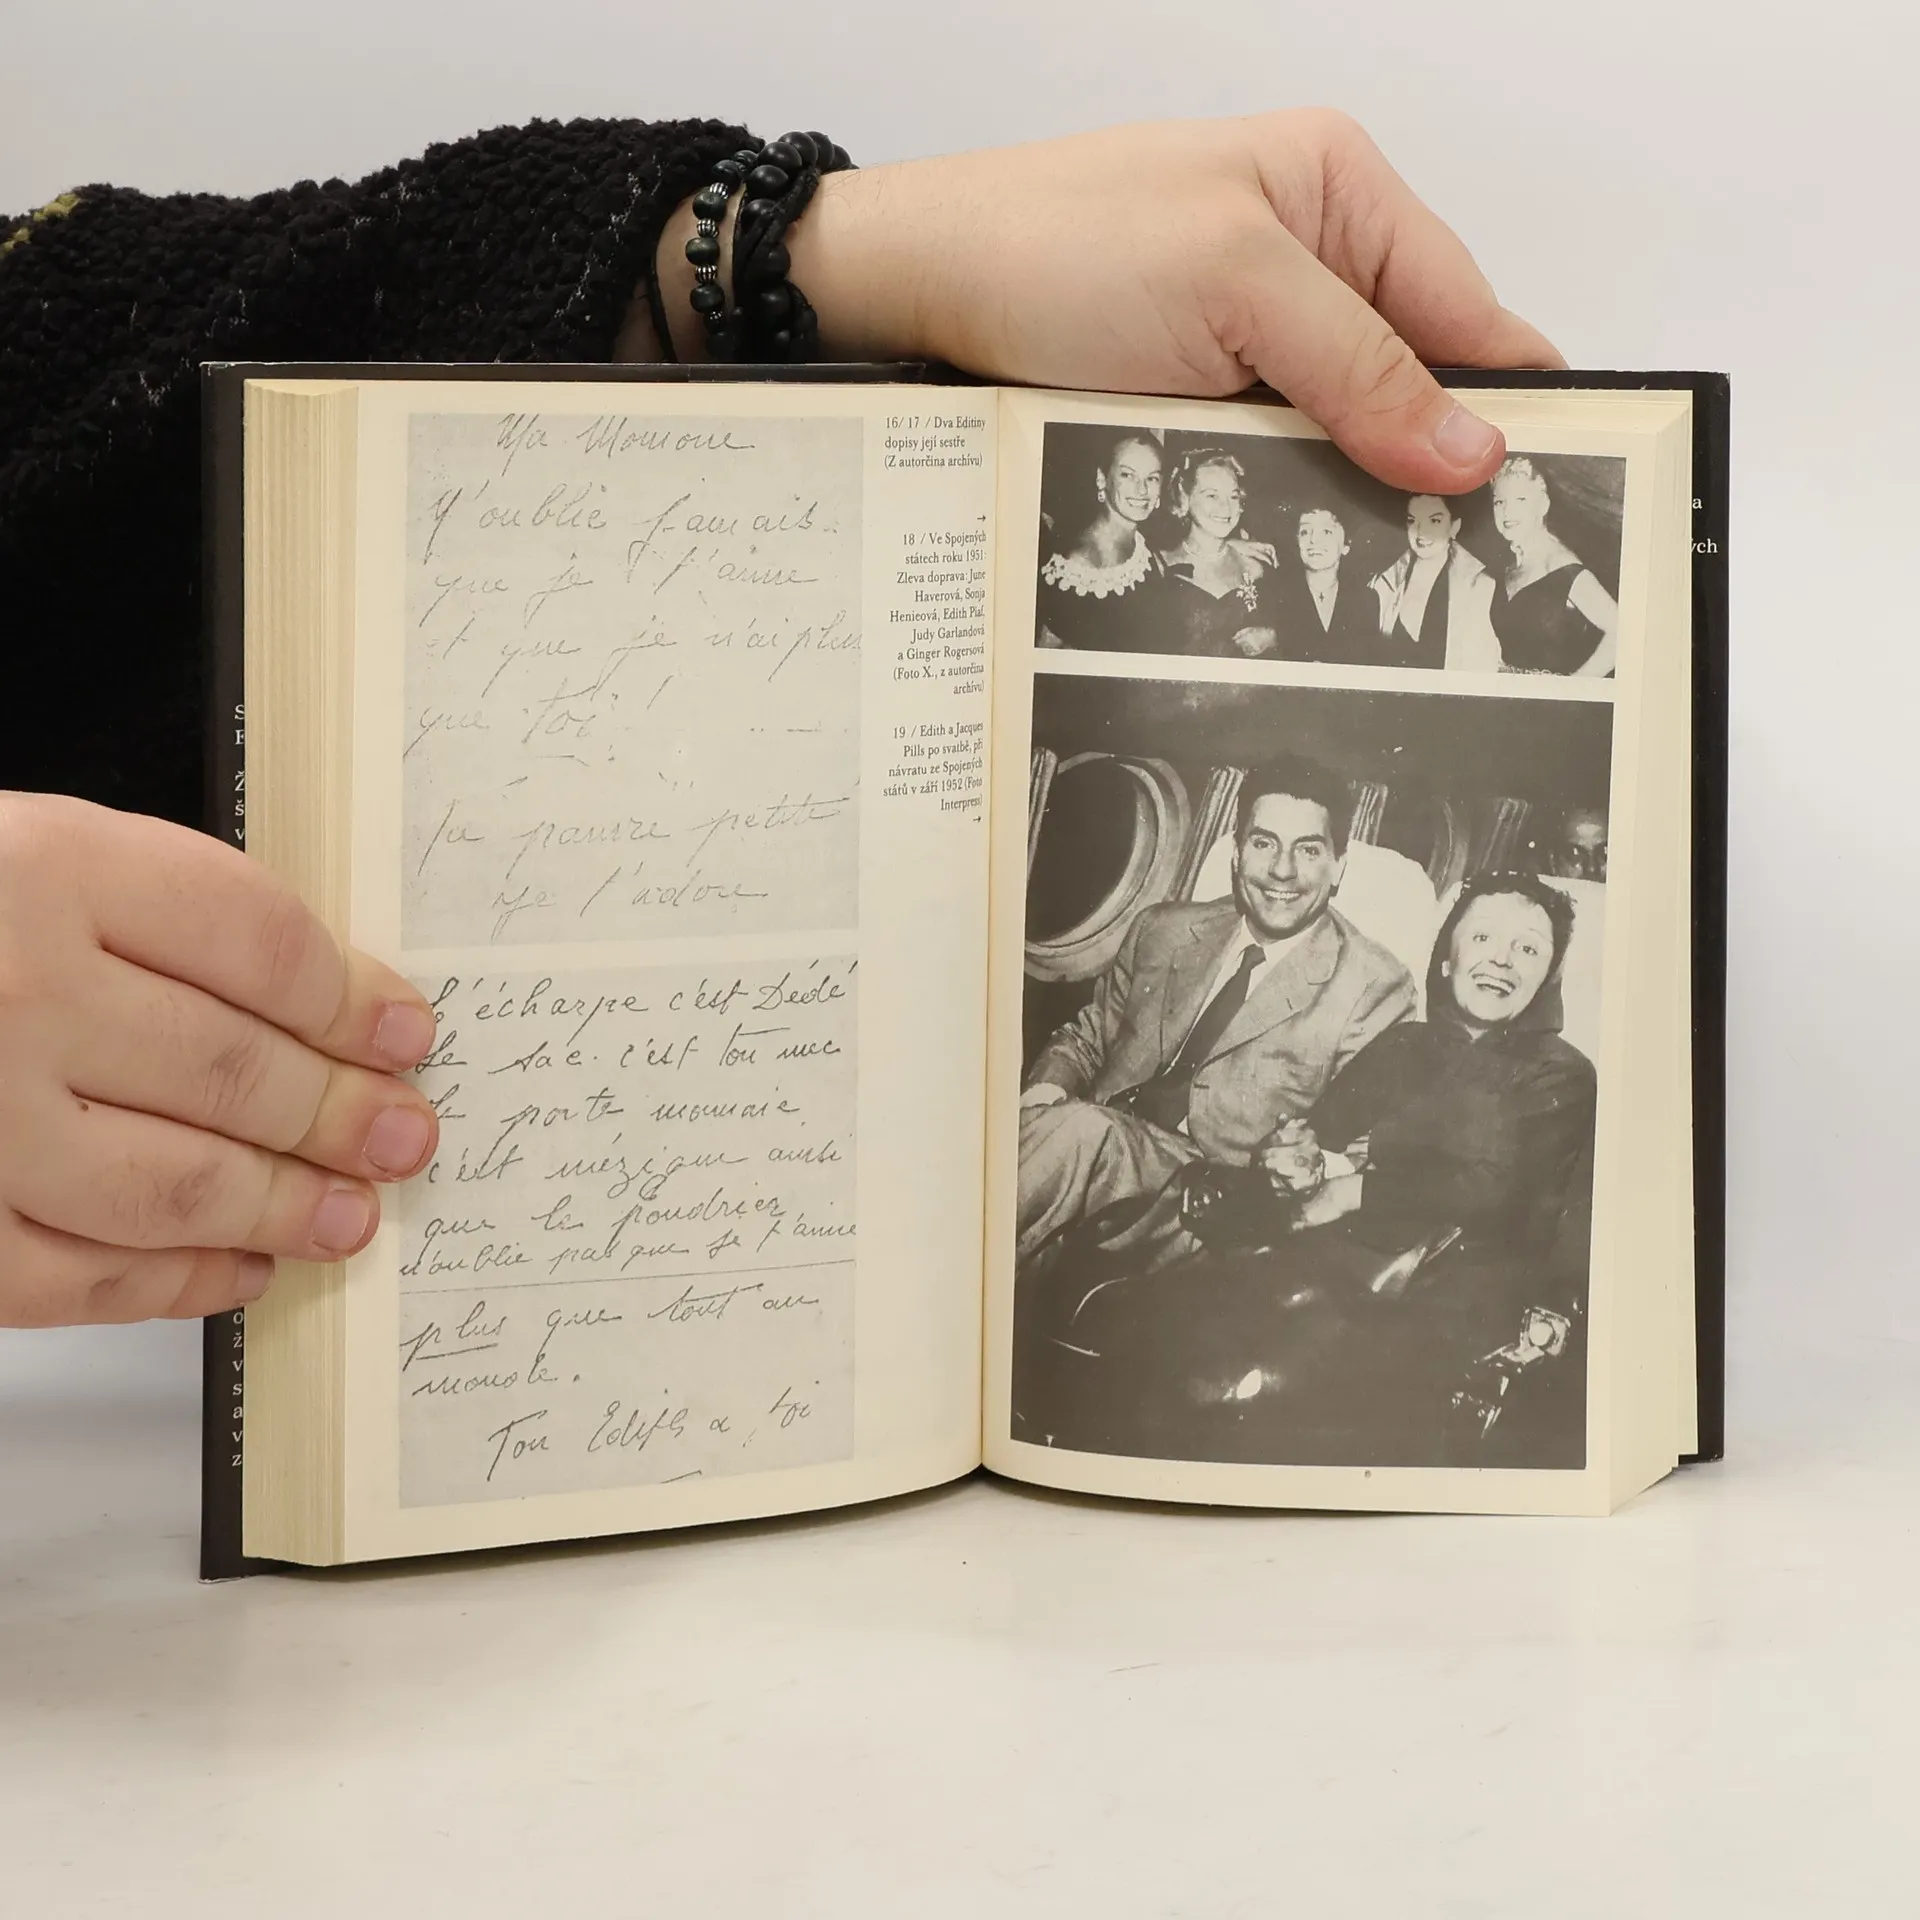 Ma Momone
N'oublie jamais
que je t'aime
et que je n'ai plus
que toi !
Ta pauvre petite
je t'adore
L'écharpe c'est Dédé
Le sac. c'est ton mec
Le porte monnaie
c'est mézigue ainsi
que le poudrier
n'oublie pas que je t'aime
plus que tout au
monde.
Ton Edith a toi
16/ 17 / Dva Editiny
dopisy její sestře
(Z autorčina archívu)
→
18 / Ve Spojených
státech roku 1951:
Zleva doprava: June
Haverová, Sonja
Henieová, Edith Piaf,
Judy Garlandová
a Ginger Rogersová
(Foto X., z autorčina
archívu)
19 / Edith a Jacques
Pills po svatbě, při
návratu ze Spojených
států v září 1952 (Foto
Interpress)
→
S
E
Ž
š
v
o
ž
v
s
a
v
z
a
ých